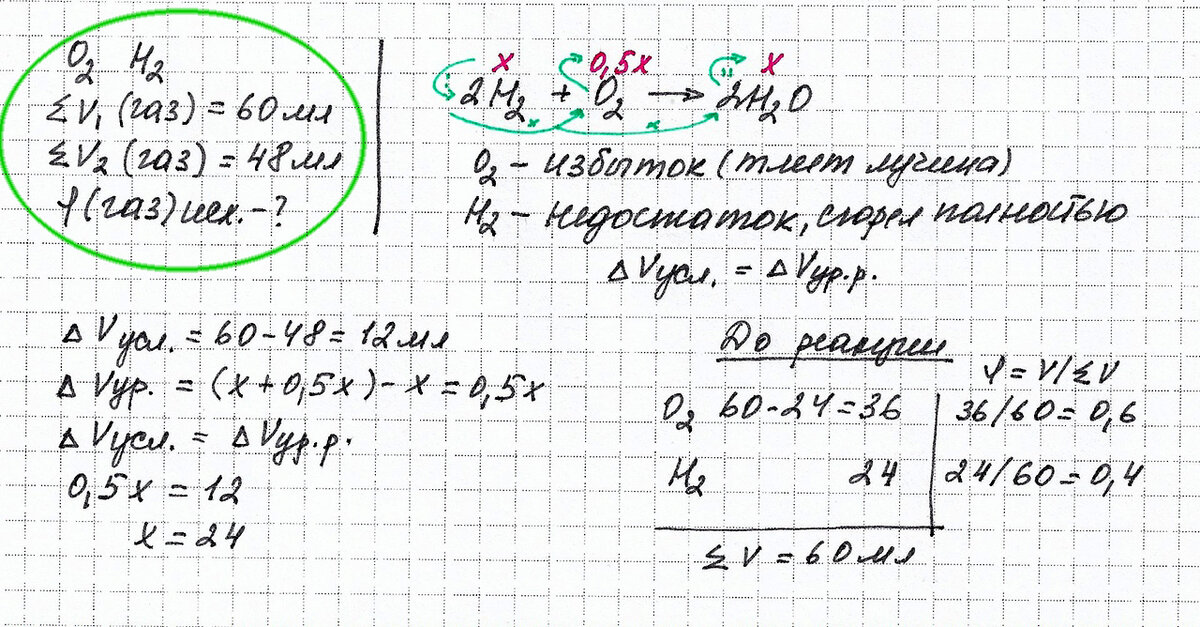 O₂ H₂
ΣV₁ (газ) = 60 мл
ΣV₂ (газ) = 48 мл
φ(газ) исх. - ?
x 0,5x x
2H₂ + O₂ → 2H₂O
O₂ - избыток (тлеет лучина)
H₂ - недостаток, сгорел полностью
ΔVусл. = ΔVур.р.
ΔVусл. = 60-48 = 12 мл
ΔVур. = (x+0,5x) - x = 0,5x
ΔVусл. = ΔVур.р.
0,5x = 12
x = 24
До реакции
φ = V/ΣV
O₂ 60-24=36 36/60=0,6
H₂ 24 24/60=0,4
ΣV = 60 мл